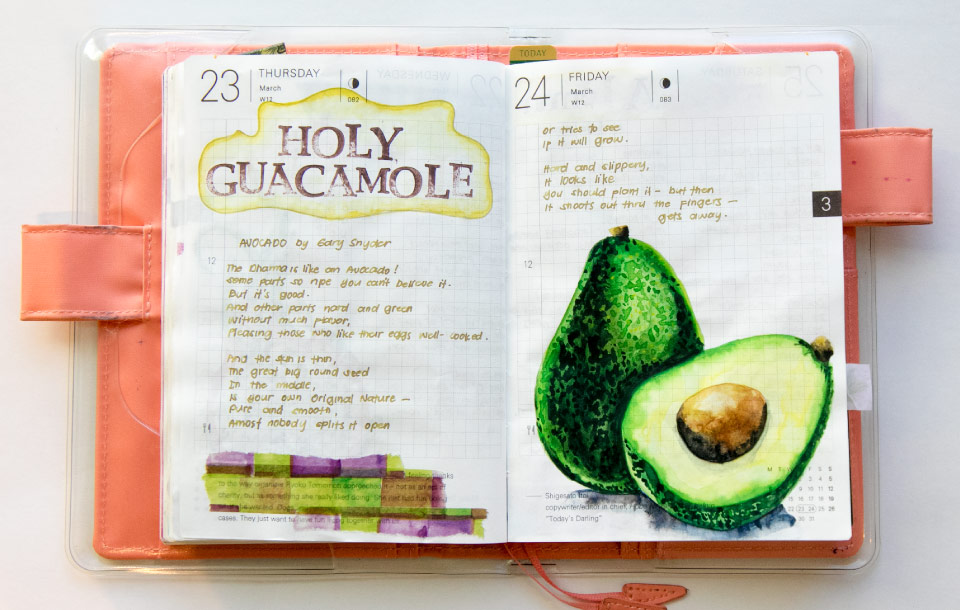 TODAY
23 THURSDAY
March
W12
082
HOLY
GUACAMOLE
AVOCADO by Gary Snyder
12
The Dharma is like an Avocado!
some parts so ripe you can't believe it.
But it's good.
And other parts hard and green
Without much flavor,
Pleasing those who like their eggs well-cooked.
And the skin is thin,
The great big round seed
In the middle,
Is your own Original Nature —
Pure and smooth,
Amost nobody splits it open
cases. They just want to have fun
24 FRIDAY
March
W12
083
or tries to see
If it will grow.
Hard and slippery,
It looks like
you should plant it - but then
It shoots out thru the fingers —
gets away.
3
12
Shigesato Itoi
copywriter/editor in chief,
"Today's Darling"